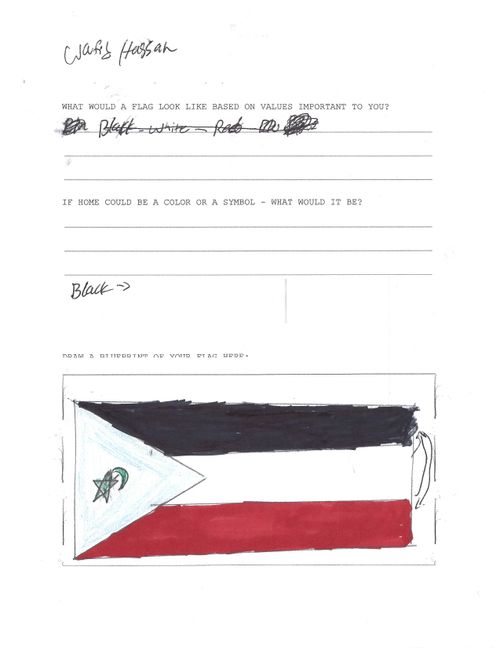 Hassan
WHAT WOULD A FLAG LOOK LIKE BASED ON VALUES IMPORTANT TO YOU?
Black - White - Red
IF HOME COULD BE A COLOR OR A SYMBOL - WHAT WOULD IT BE?
Black ->
DRAW A BLUEPRINT OF YOUR FLAG HERE: